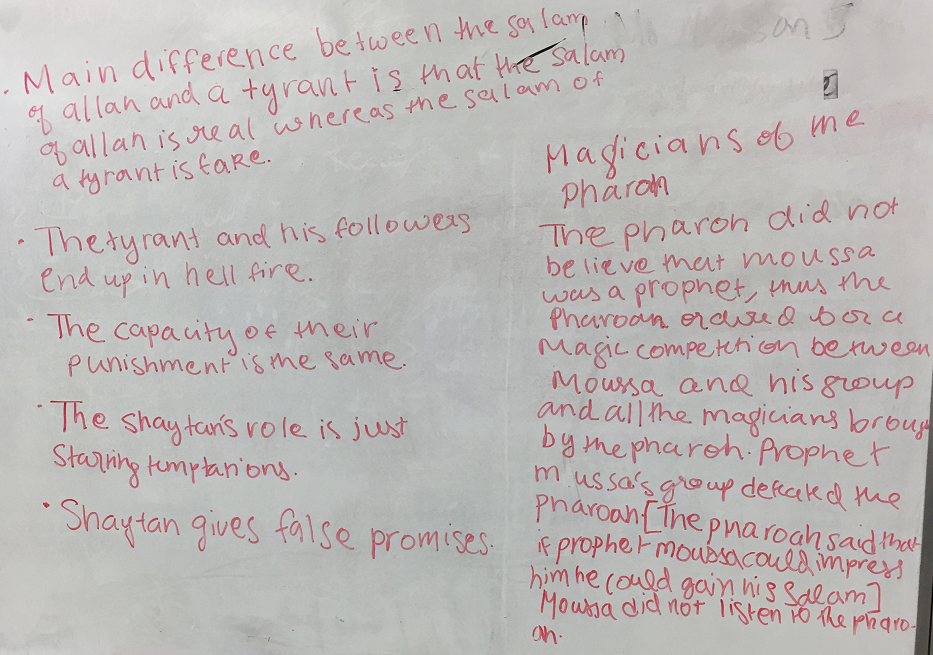 . Main difference between the salam
of allah and a tyrant is that the salam
of allah is real whereas the salam of
a tyrant is fake.
• The tyrant and his followers
end up in hell fire.
- The capacity of their
punishment is the same.
• The Shaytan's role is just
Starring temptarions.
• Shaytan gives false promises.
Magicians of the
pharoh
The pharon did not
believe that moussa
was a prophet, thus the
Pharoah ordered for a
Magic competition between
Moussa and his group
and all the magicians broug
by the pharoh. Prophet
mussa's group defeated the
pharoah. [The pharoah said that
if prophet moussa could impress
him he could gain his salam]
Moussa did not listen to the pharo-
ah.